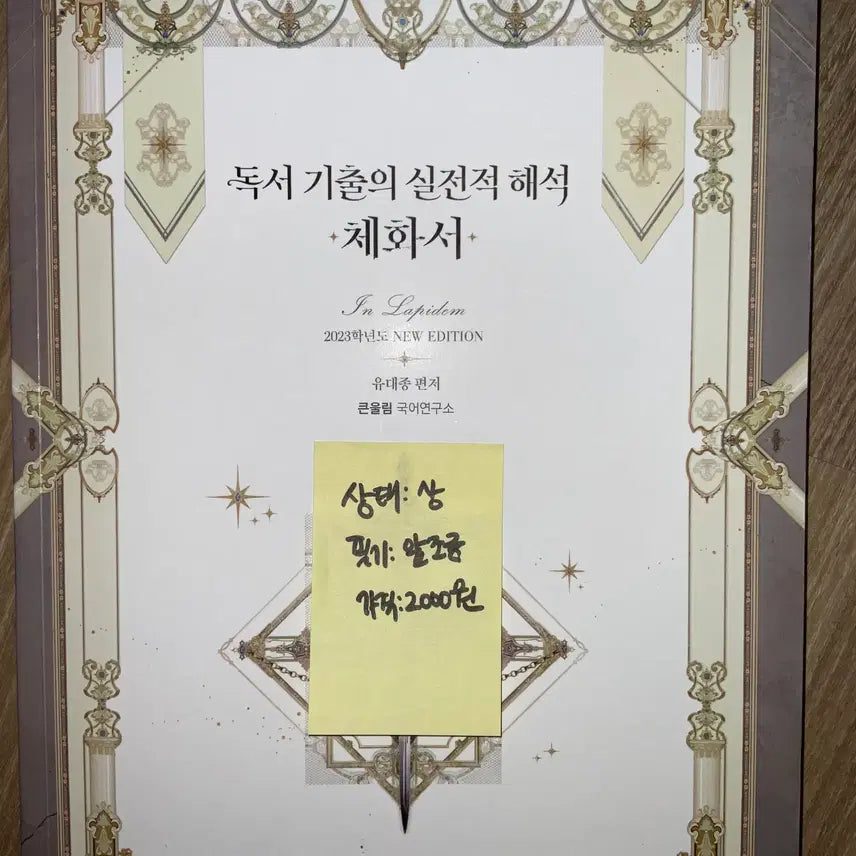 독서 기출의 실전적 해석
체화서
In Lapidem
2023학년도 NEW EDITION
유대종 편저
큰울림 국어연구소
상태: 상
필기: 앞조금
가격: 2000원